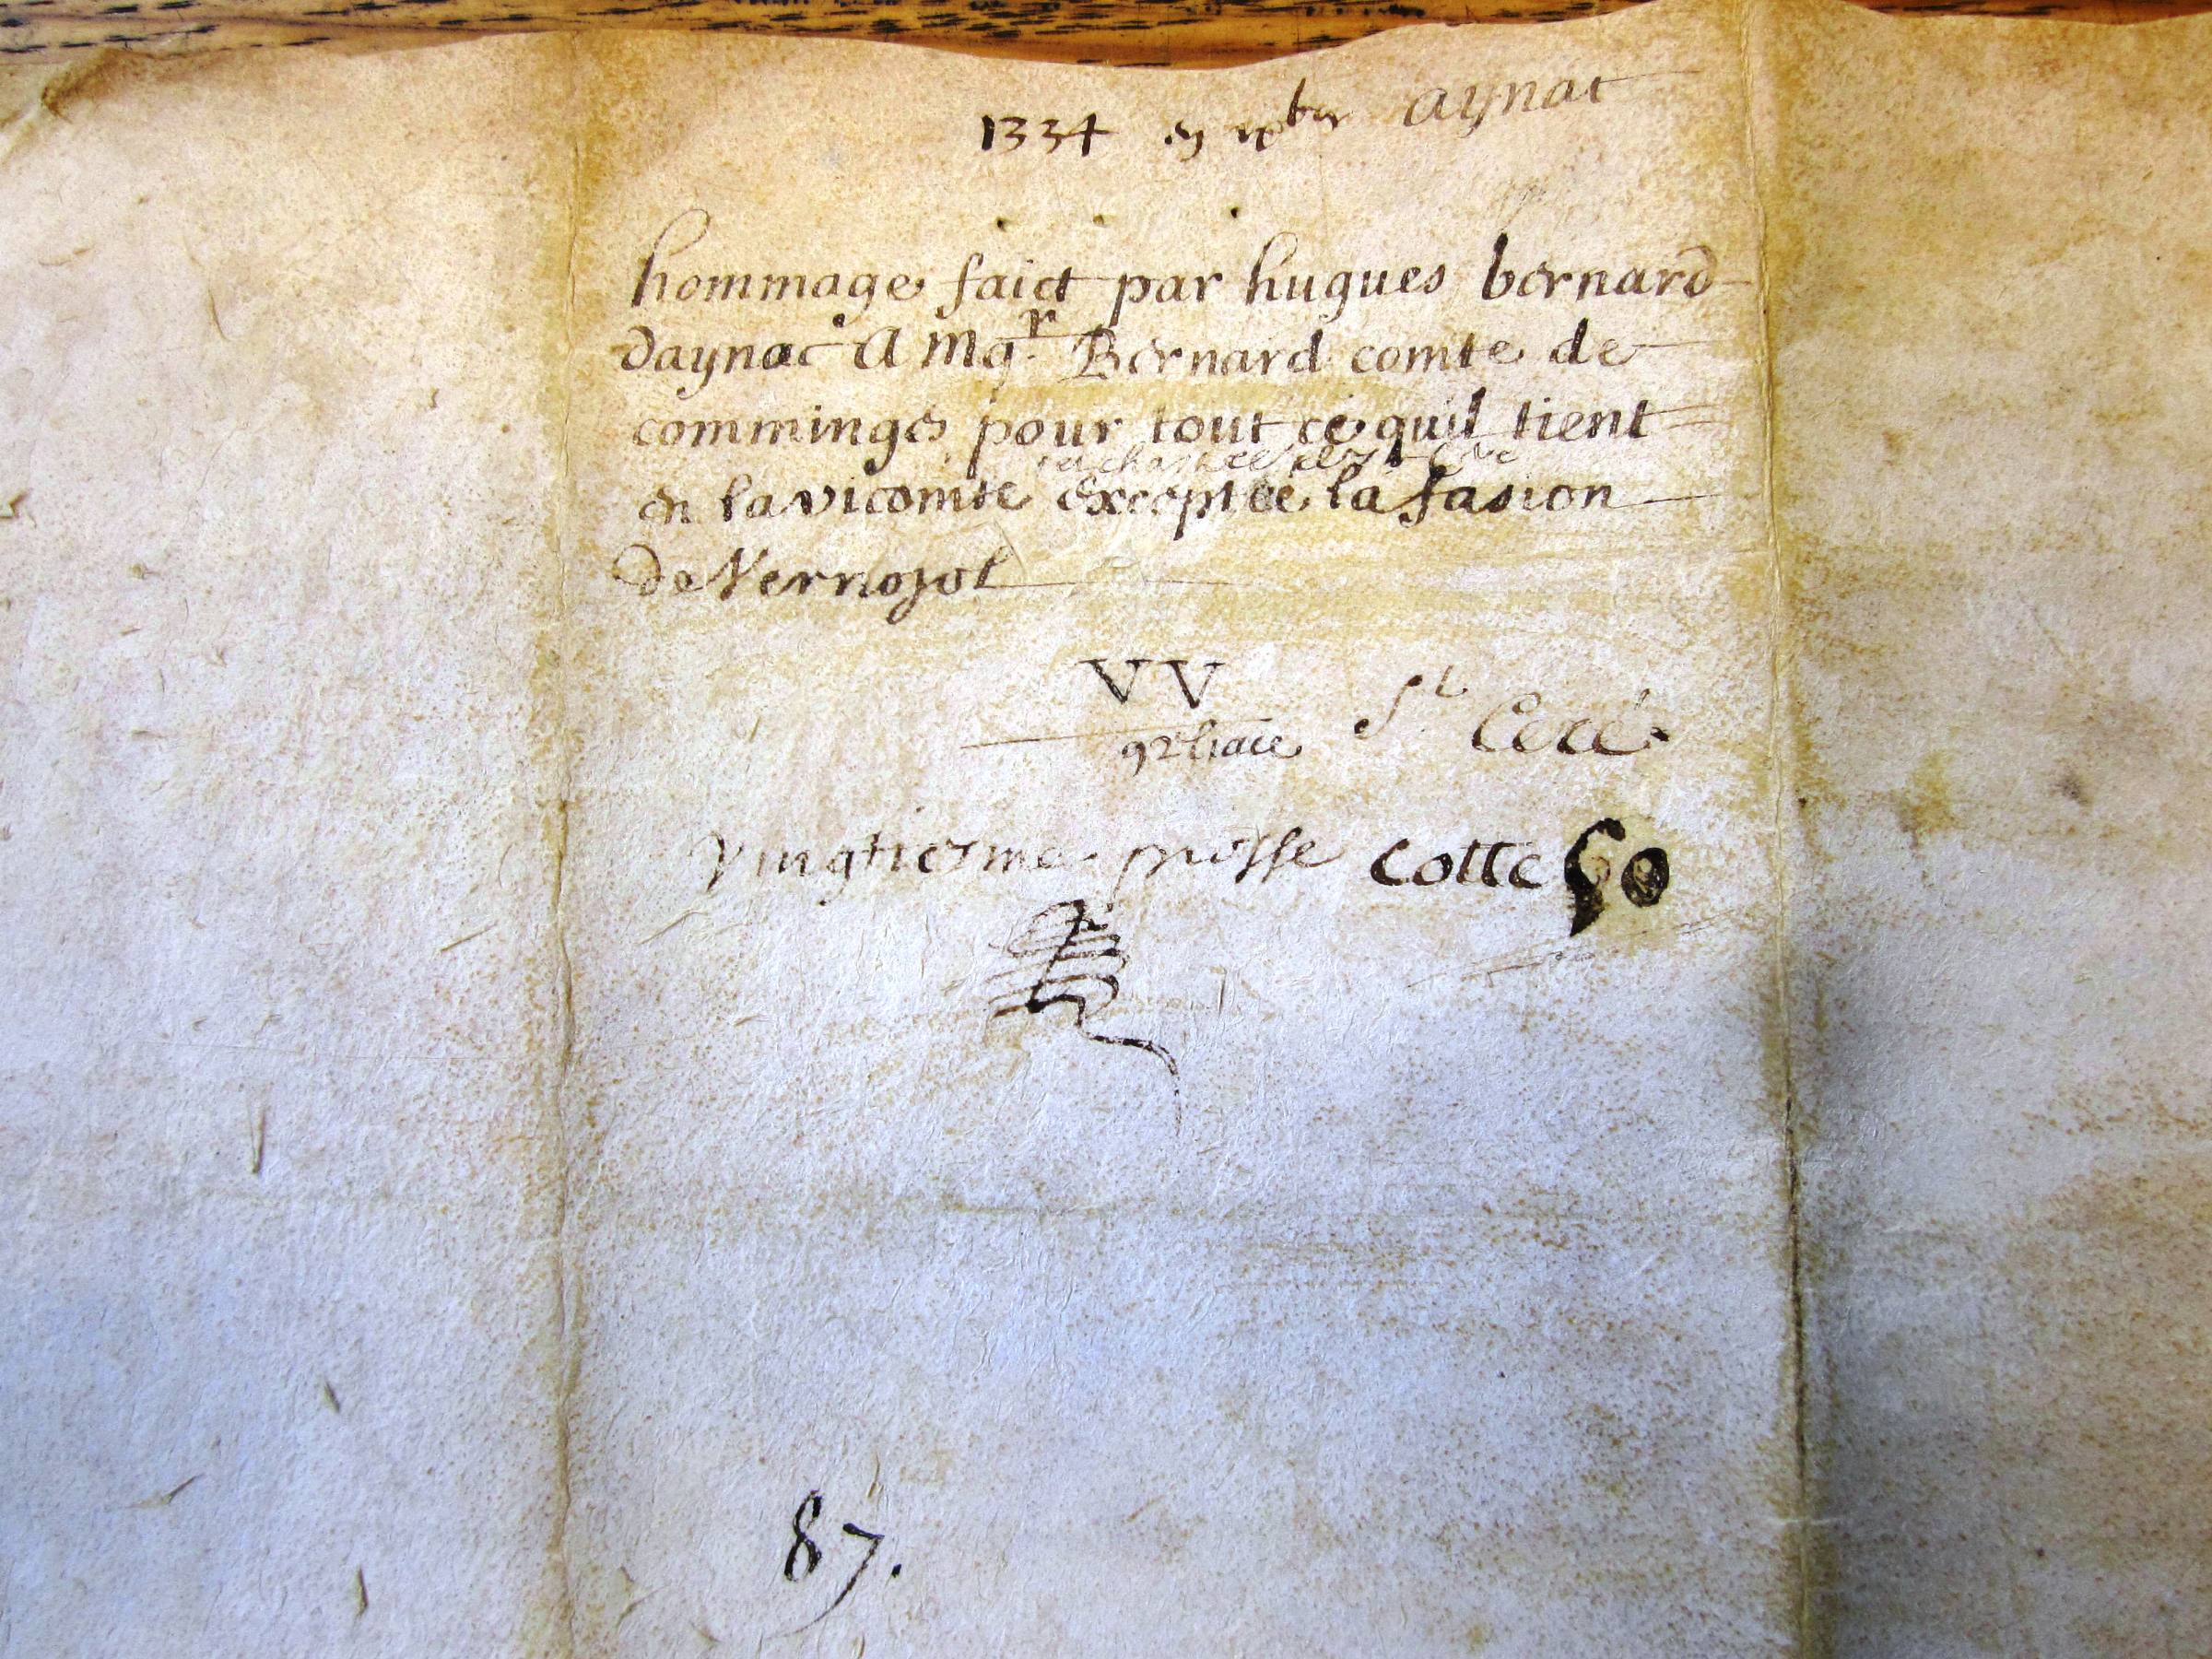 1334 en xbre aynac
hommage faict par hugues bernard
daynac A Mgr Bernard comte de
comminges pour tout ce quil tient
en la vicomte exceptée la fasion
de Vernojol
VV
92 liace St Ceré
vingtiesme cotte 50
87.